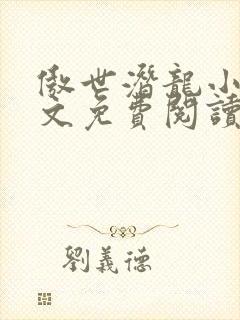 傲世潛龍小
文免費閱讀
劉義德